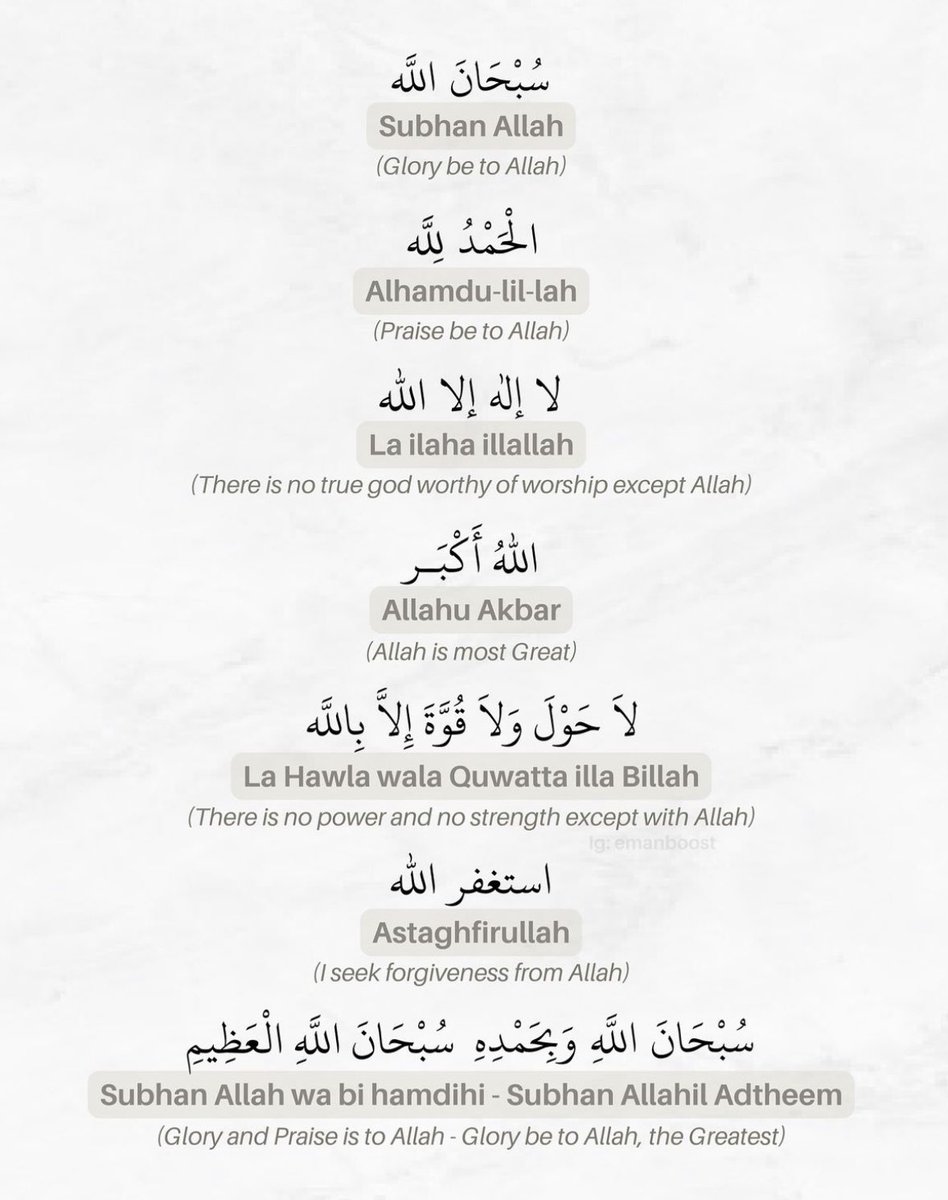 سُبْحَانَ اللَّه
Subhan Allah
(Glory be to Allah)
الْحَمْدُ لِلَّه
Alhamdu-lil-lah
(Praise be to Allah)
لا إلٰه إلا الله
La ilaha illallah
(There is no true god worthy of worship except Allah)
اللهُ أَكْبَــر
Allahu Akbar
(Allah is most Great)
لاَ حَوْلَ وَلاَ قُوَّةَ إِلاَّ بِاللَّه
La Hawla wala Quwatta illa Billah
(There is no power and no strength except with Allah)
Ig: emanboost
استغفر الله
Astaghfirullah
(I seek forgiveness from Allah)
سُبْحَانَ اللَّهِ وَبِحَمْدِهِ سُبْحَانَ اللَّهِ الْعَظِيمِ
Subhan Allah wa bi hamdihi - Subhan Allahil Adtheem
(Glory and Praise is to Allah - Glory be to Allah, the Greatest)